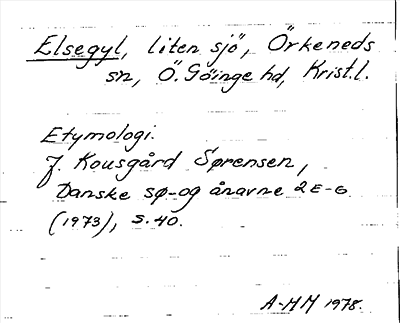 Elsegyl, liten sjö, Örkeneds
sn, Ö. Göinge hd, Krist.l.
Etymologi.
J. Kousgård Sørensen,
Danske sø- og ånavne 2 E-G
(1973), s. 40.
A-MM 1978.